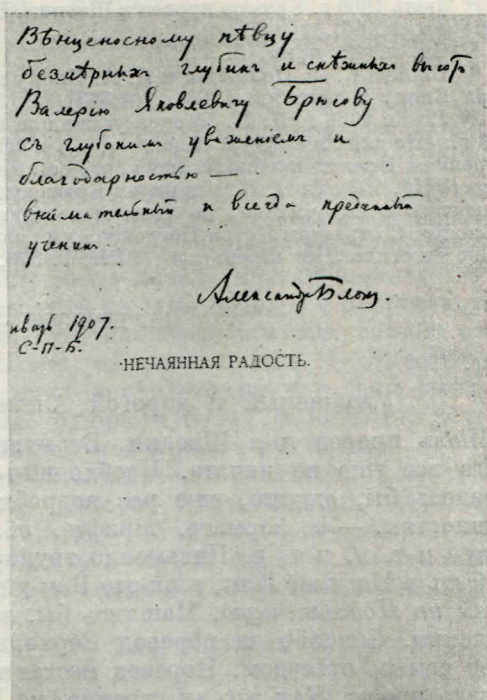 Вѣнценосному пѣвцу
безмѣрныхъ глубинъ и снѣжныхъ высотъ
Валерію Яковлевичу Брюсову
съ глубокимъ уваженіемъ и
благодарностью —
внимательный и всегда преданный
ученикъ.
Александръ Блокъ.
январь 1907.
С-П-Б.
НЕЧАЯННАЯ РАДОСТЬ.